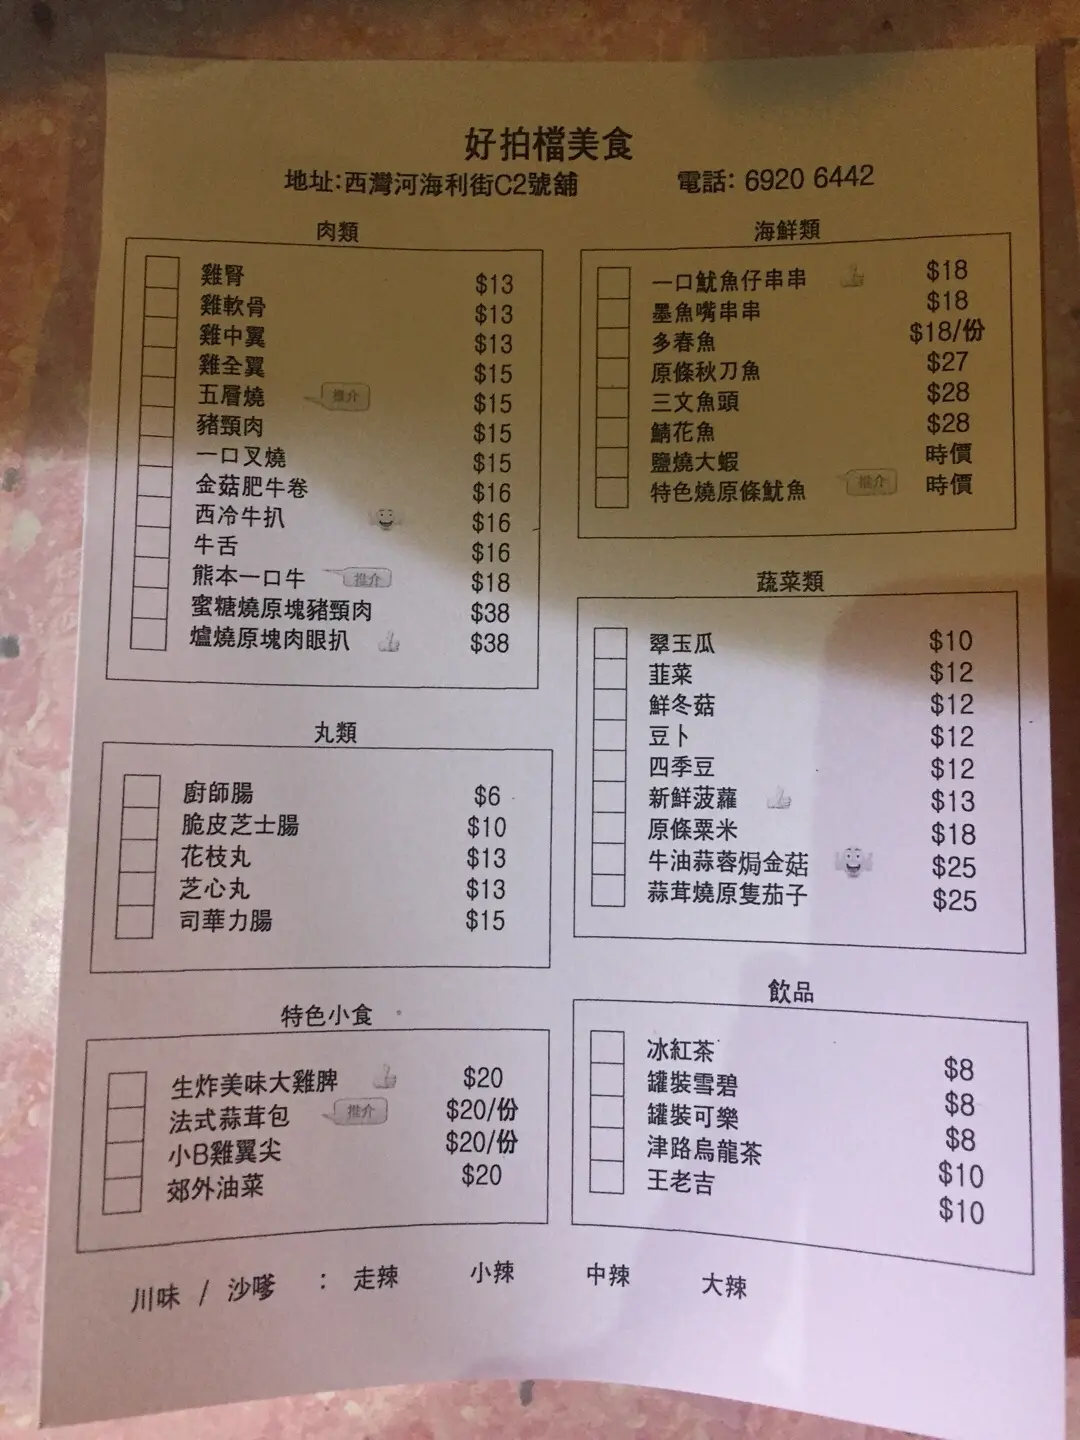 好拍檔美食
地址:西灣河海利街C2號舖 電話: 6920 6442
肉類
雞腎 $13
雞軟骨 $13
雞中翼 $13
雞全翼 $15
五層燒 推介 $15
豬頸肉 $15
一口叉燒 $15
金菇肥牛卷 $16
西冷牛扒 $16
牛舌 $16
熊本一口牛 推介 $18
蜜糖燒原塊豬頸肉 $38
爐燒原塊肉眼扒 $38
丸類
廚師腸 $6
脆皮芝士腸 $10
花枝丸 $13
芝心丸 $13
司華力腸 $15
特色小食
生炸美味大雞脾 $20
法式蒜茸包 推介 $20/份
小B雞翼尖 $20/份
郊外油菜 $20
海鮮類
一口魷魚仔串串 $18
墨魚嘴串串 $18
多春魚 $18/份
原條秋刀魚 $27
三文魚頭 $28
鯖花魚 $28
鹽燒大蝦 時價
特色燒原條魷魚 推介 時價
蔬菜類
翠玉瓜 $10
韮菜 $12
鮮冬菇 $12
豆卜 $12
四季豆 $12
新鮮菠蘿 $13
原條粟米 $18
牛油蒜蓉焗金菇 $25
蒜茸燒原隻茄子 $25
飲品
冰紅茶 $8
罐裝雪碧 $8
罐裝可樂 $8
津路烏龍茶 $10
王老吉 $10
川味 / 沙嗲 : 走辣 小辣 中辣 大辣